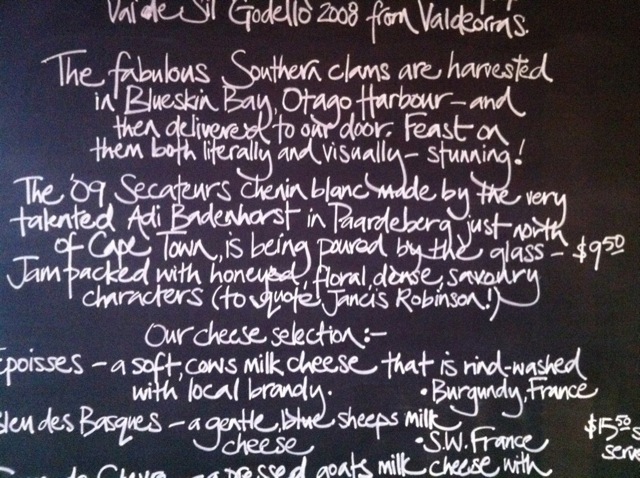 Val de Sil Godello 2008 from Valdeorras.
The fabulous Southern clams are harvested
in Blueskin Bay, Otago Harbour - and
then delivered to our door. Feast on
them both literally and visually - stunning!
The '09 Secateurs chenin blanc made by the very
talented Adi Badenhorst in Paardeberg, just north
of Cape Town, is being poured by the glass - $9.50
Jampacked with honeyed, floral, dense, savoury
characters (to quote Jancis Robinson!)
Our cheese selection:-
Epoisses - a soft, cows milk cheese that is rind-washed
with local brandy. • Burgundy, France
Bleu des Basques - a gentle, blue sheeps milk
cheese • S.W. France $15.50
serve
a pressed goats milk cheese with